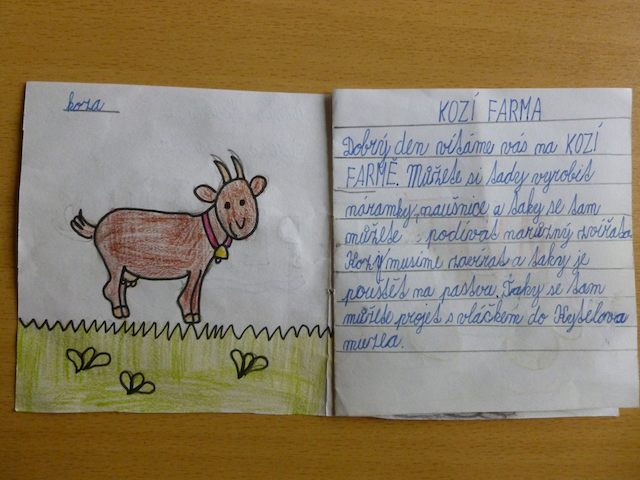 koza
KOZÍ FARMA
Dobrý den vítáme vás na KOZÍ
FARMĚ. Můžete si tady vyrobit
náramky, naušnice a taky se tam
můžete podívat na různý zvířata.
Kozy musíme zavírat a taky je
pouštět na pastvu. Taky se tam
můžete projet s vláčkem do Kytelova
muzea.